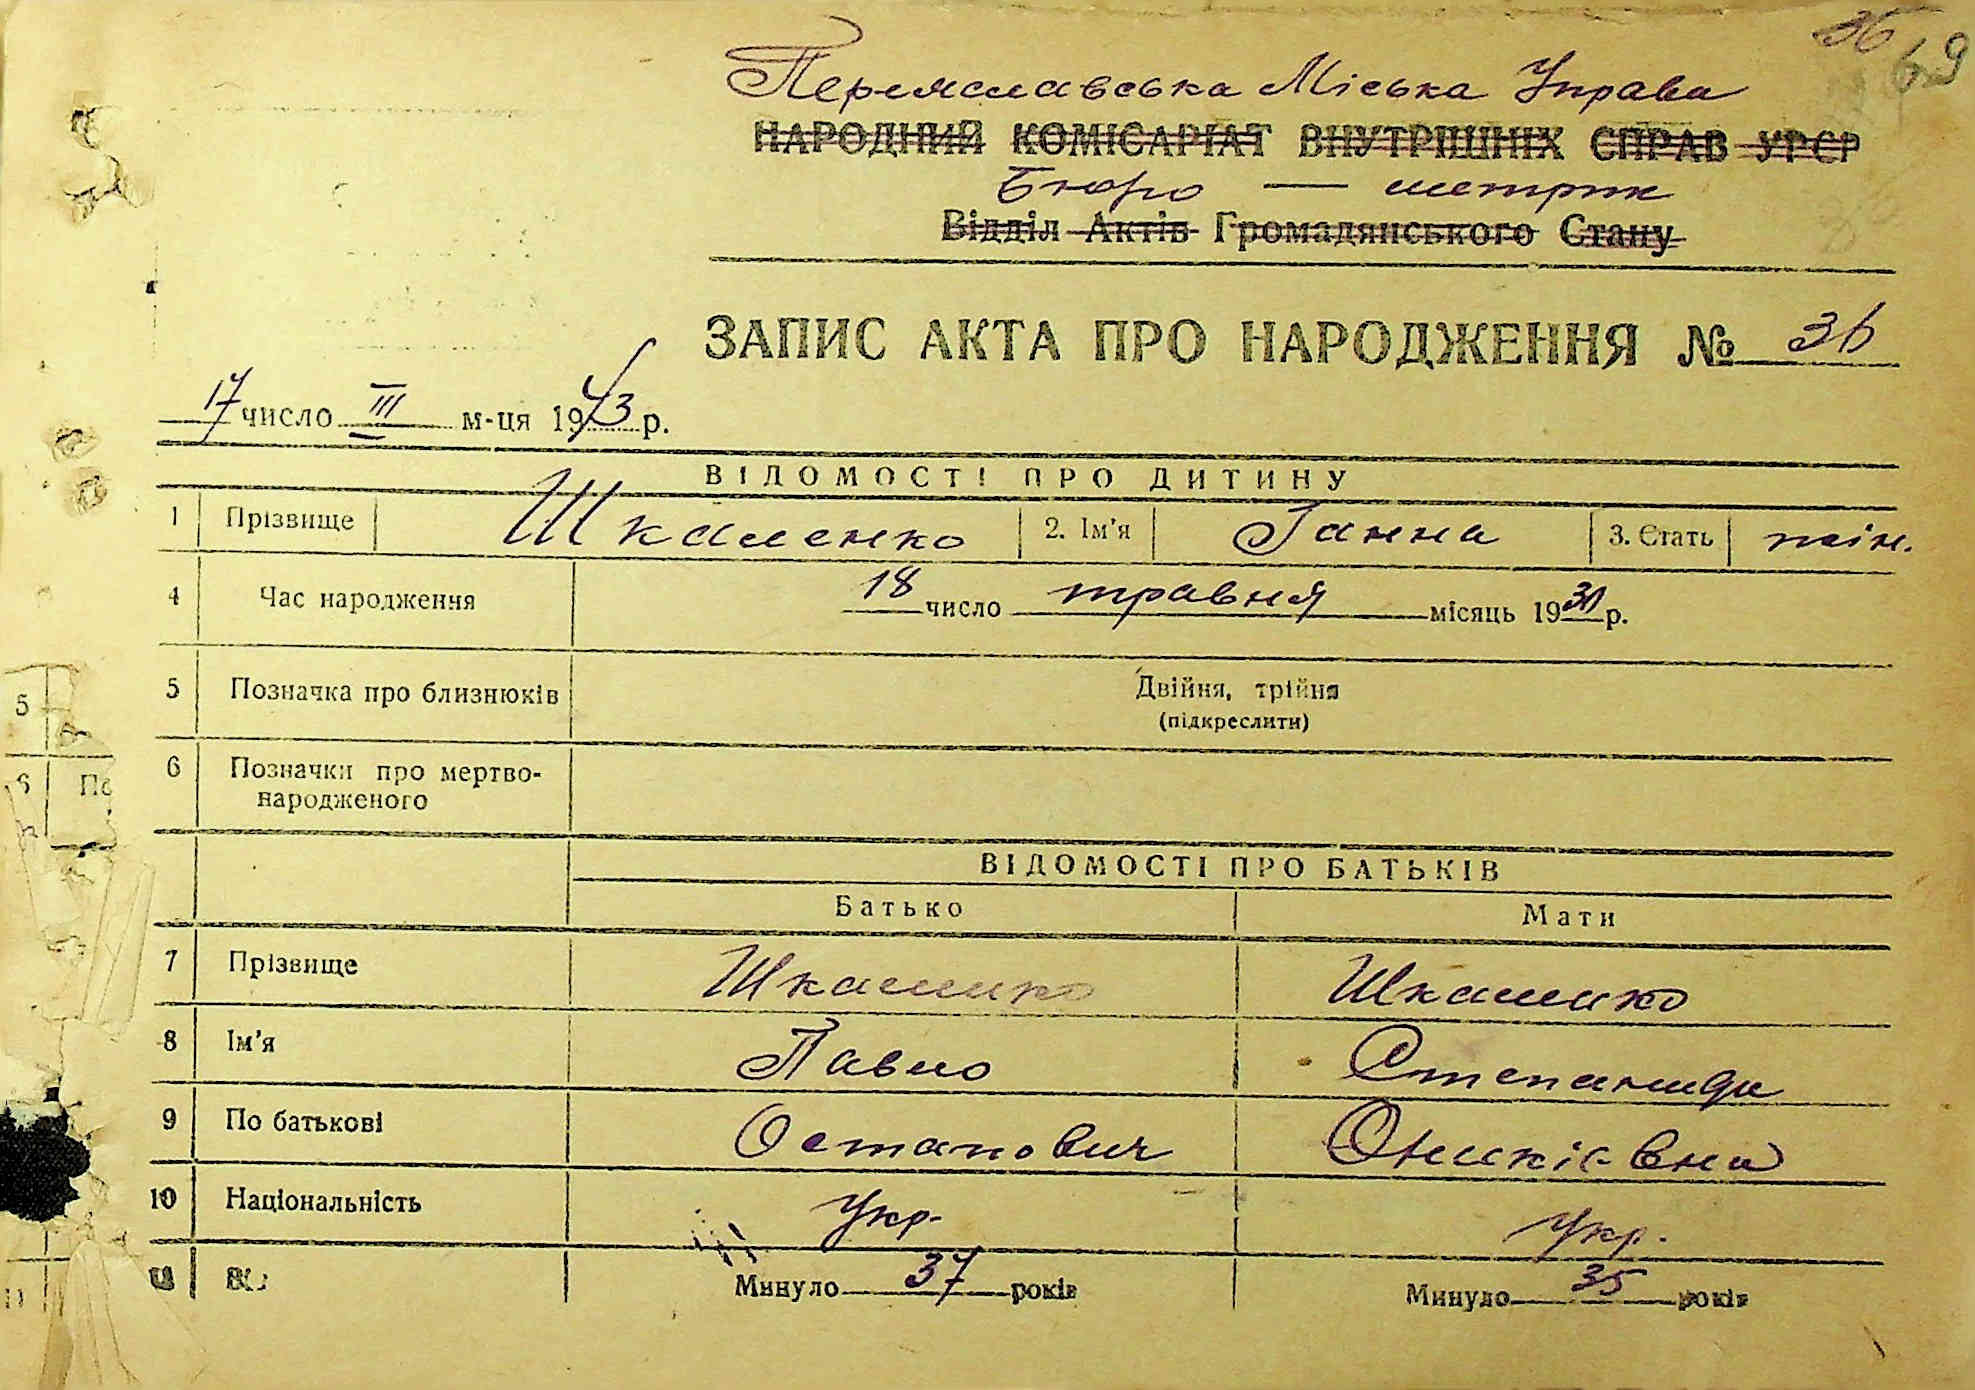 36
69
Переяславська Міська Управа
НАРОДНИЙ КОМІСАРІАТ ВНУТРІШНІХ СПРАВ УРСР
Бюро — метрик
Відділ Актів Громадянського Стану
ЗАПИС АКТА ПРО НАРОДЖЕННЯ № 36
17 число III м-ця 1943 р.
ВІДОМОСТІ ПРО ДИТИНУ
1 Прізвище Шкаленко 2. Ім'я Ганна 3. Стать жін.
4 Час народження 18 число травня місяць 19 р.
5 Позначка про близнюків Двійня, трійня
(підкреслити)
6 Позначки про мертво-
народженого
ВІДОМОСТІ ПРО БАТЬКІВ
Батько Мати
7 Прізвище
8 Ім'я Павло Степанида
9 По батькові Остапович
10 Національність Укр. Укр.
Минуло 37 років Минуло 35 років
5
6 По